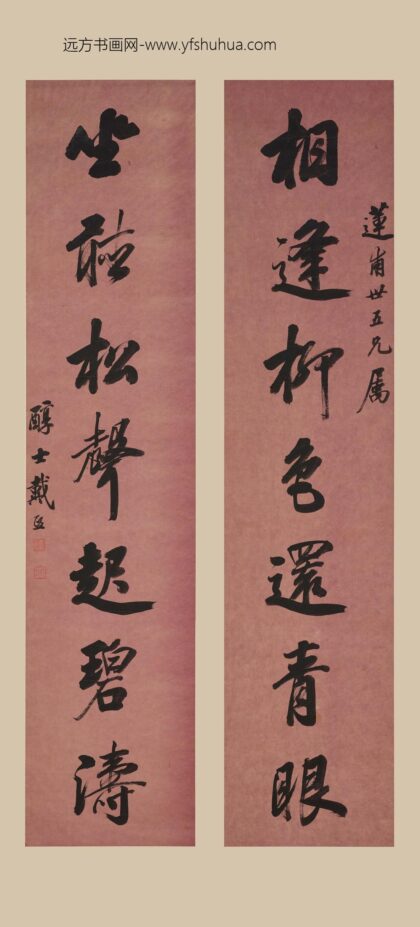 远方书画网-www.yfshuhua.com
蓮甫世五兄属
相逢柳色還青眼
坐聽松聲起碧濤
醇士戴熙